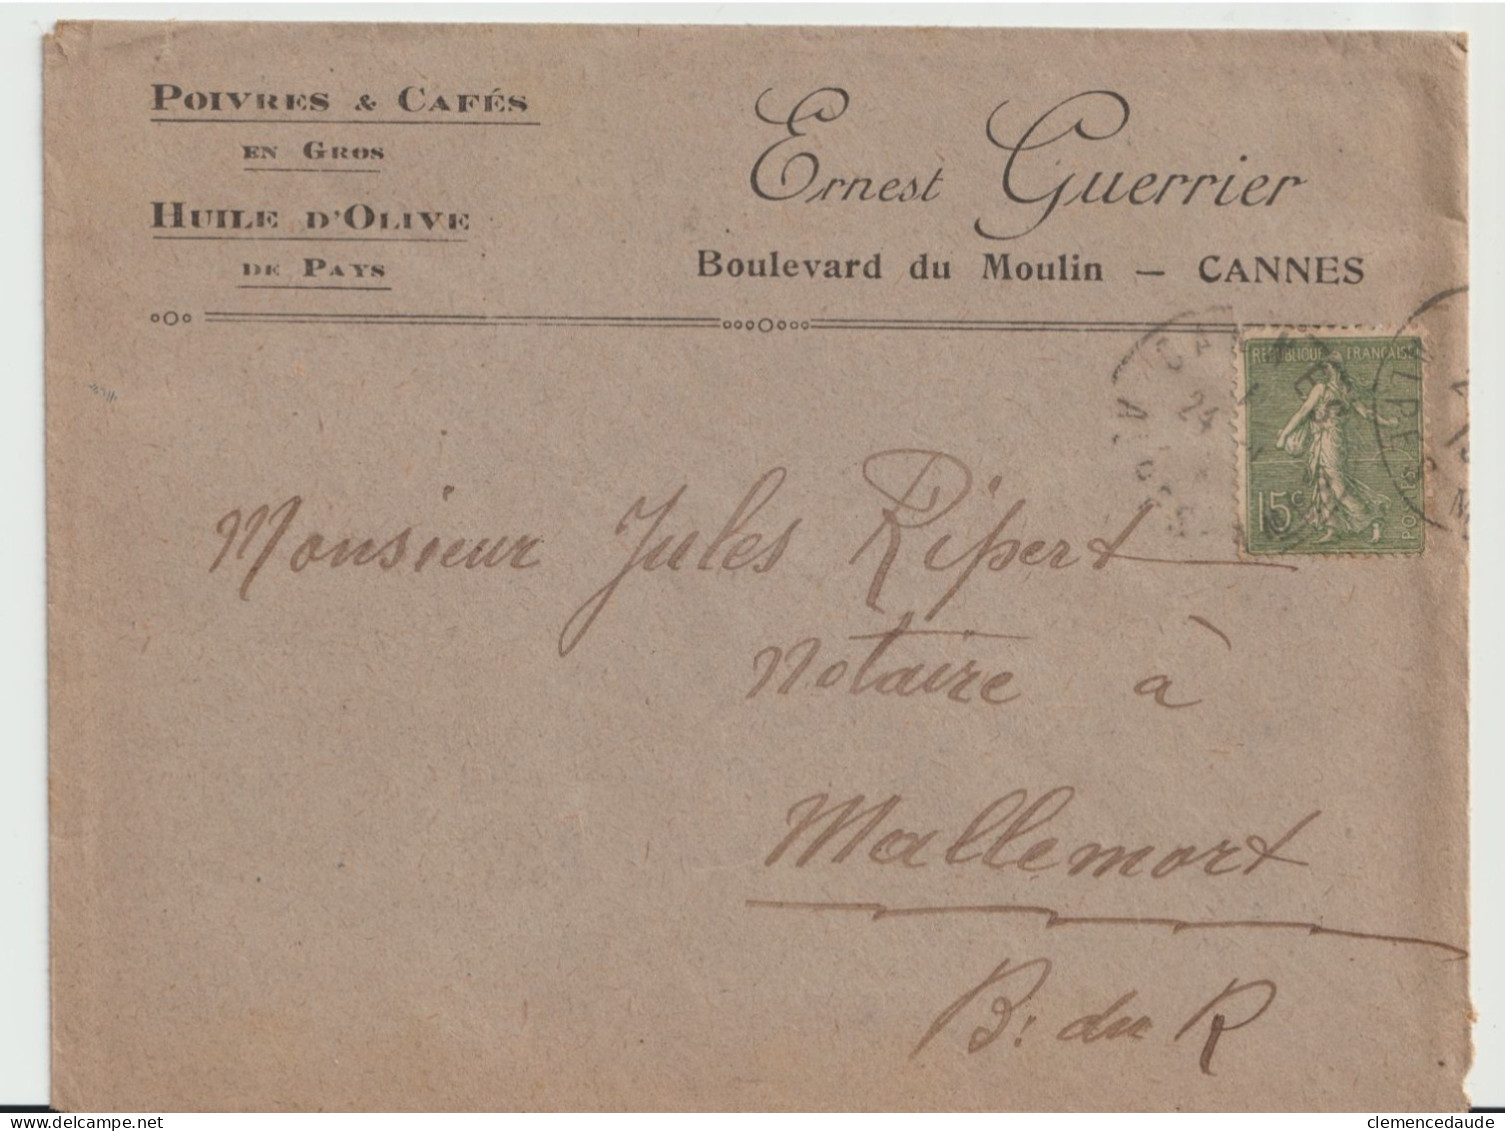 POIVRES & CAFÉS
EN GROS
HUILE D'OLIVE
DE PAYS
Ernest Guerrier
Boulevard du Moulin — CANNES
REPUBLIQUE FRANÇAISE
15c
CANNES
24
ALPES M
Monsieur Jules Ripert
Notaire à
Mallemort
B. du R
clemencedaude